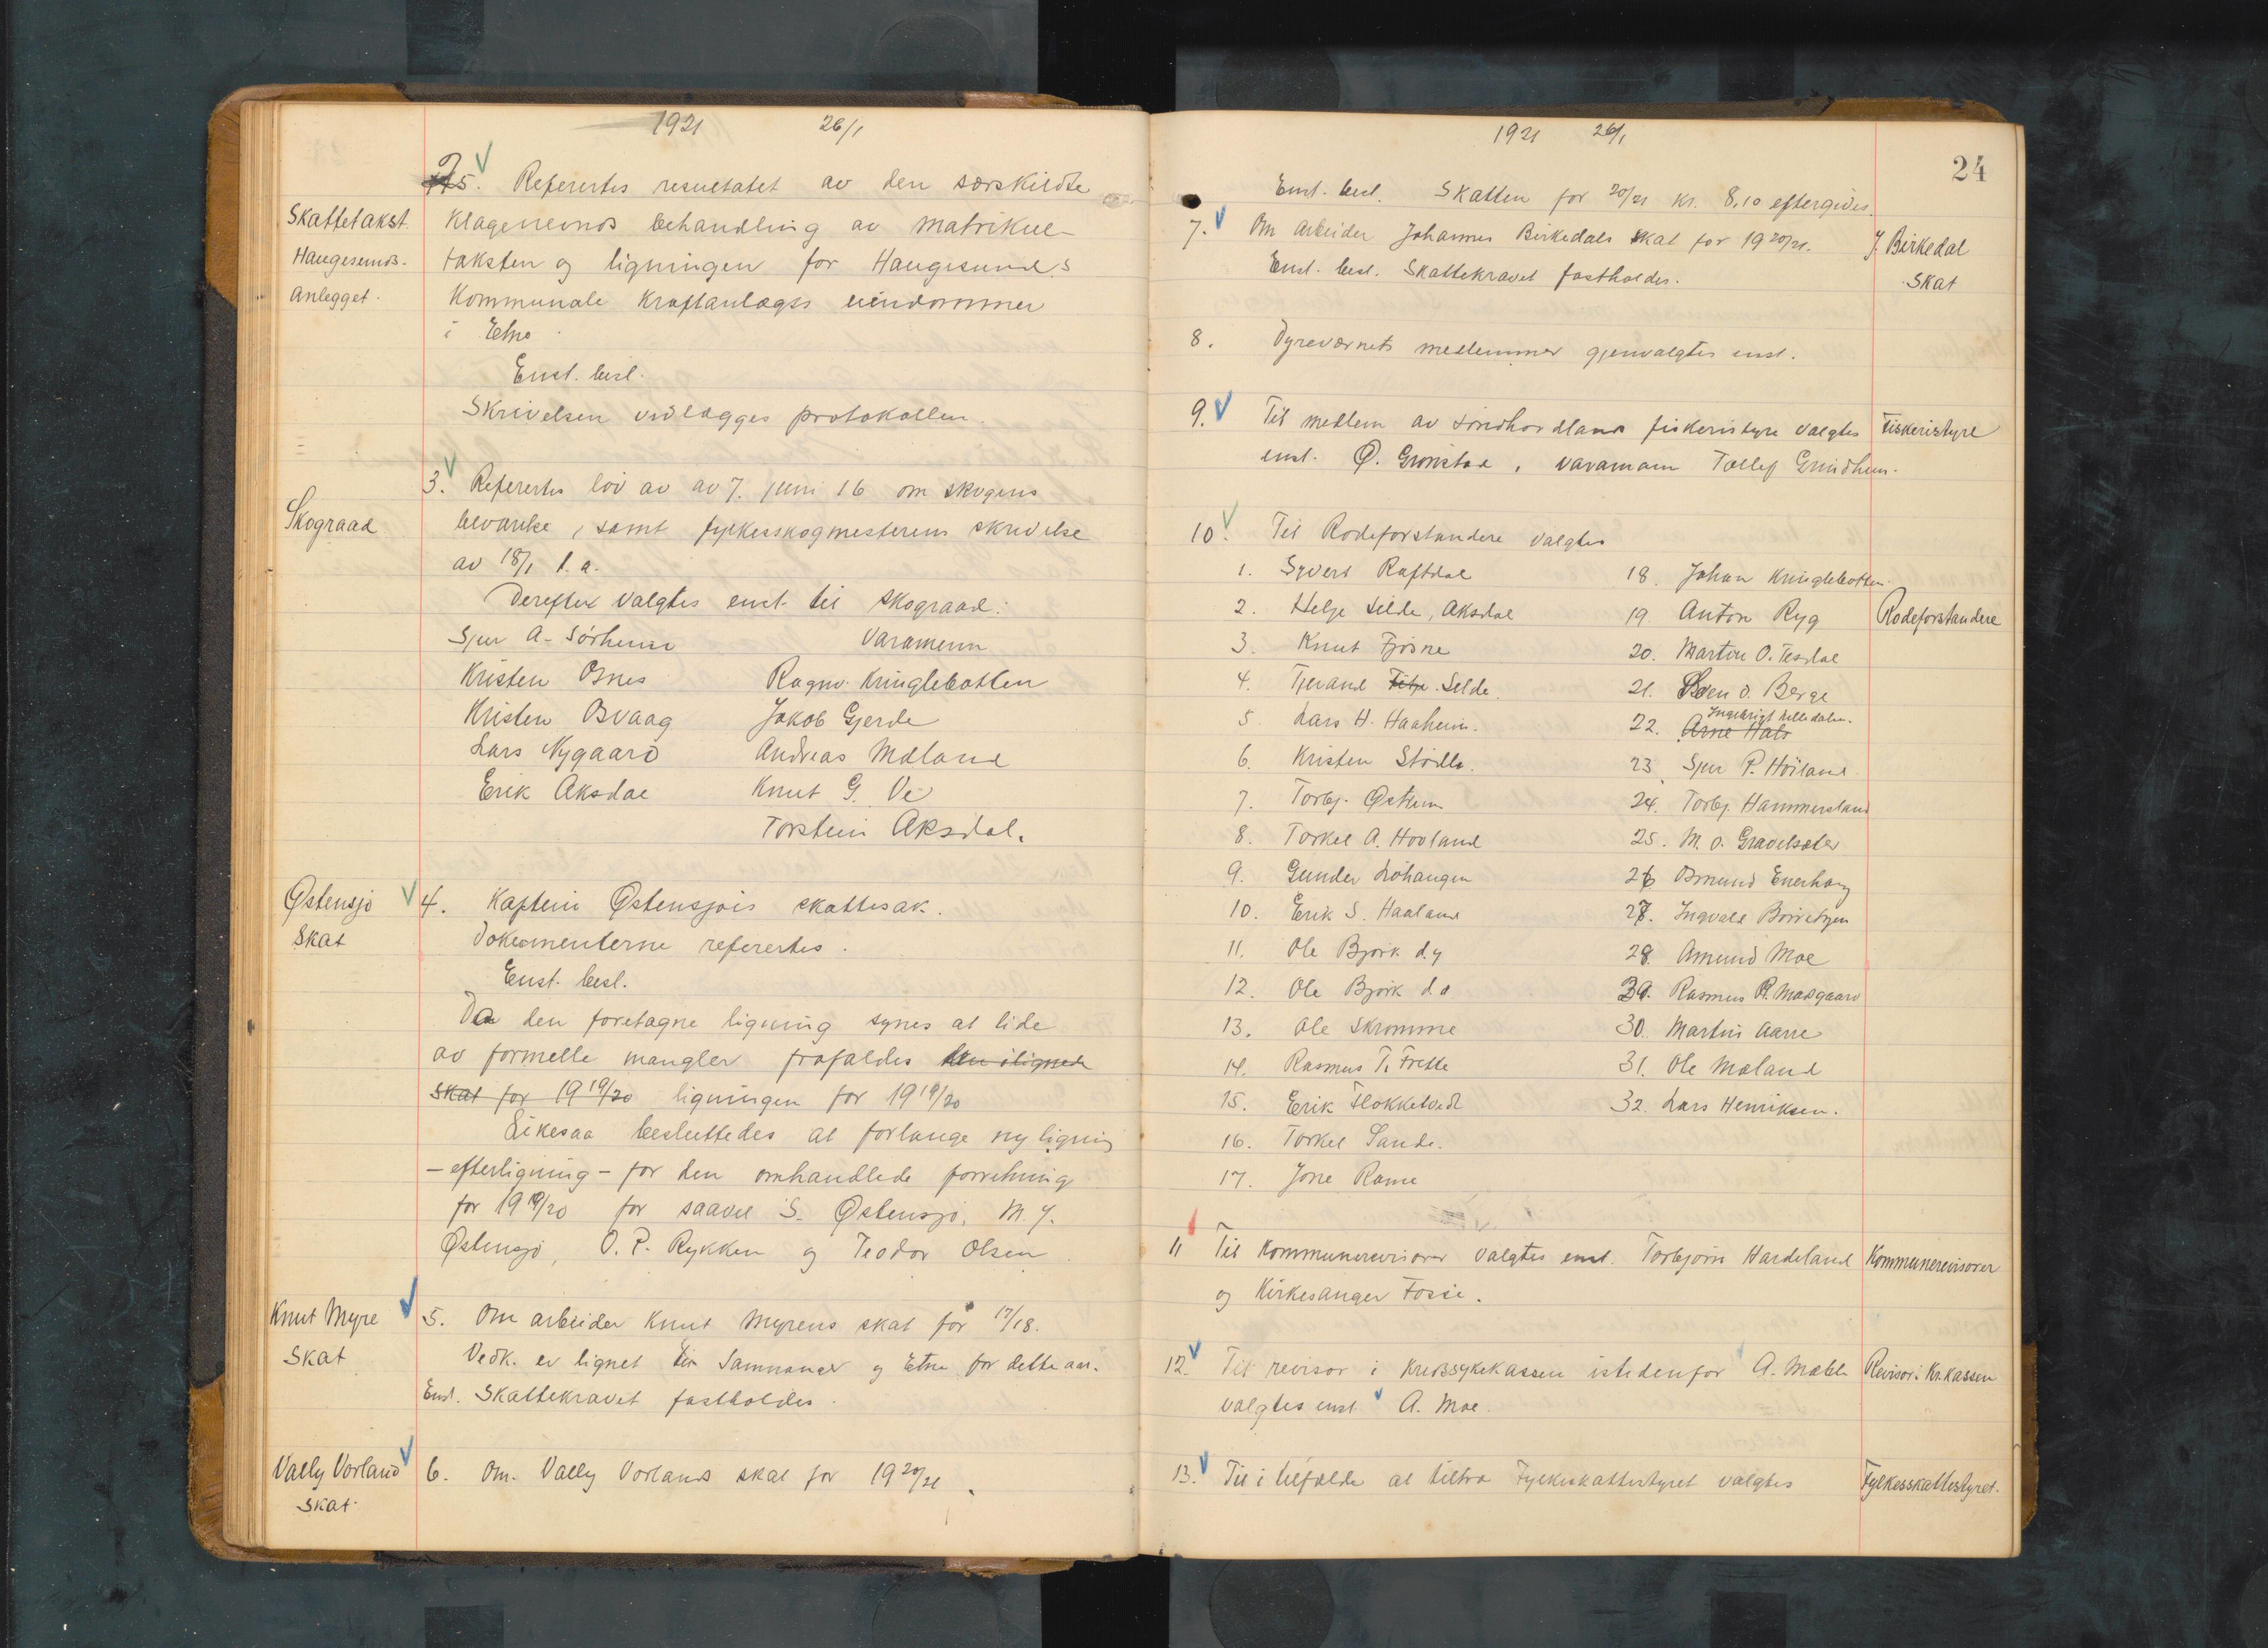 1921 26/1
2. Referertes resultatet av den særskildte
Skattetakst klagenevnds behandling av matrikul-
Haugesunds- taksten og ligningen for Haugesunds
anlegget. Kommunale Kraftanlægs eiendommer
i Etne
Enst. besl.
Skrivelsen vedlægges protokollen.
3. Referertes lov av av 7. juni 16 om skogens
Skograad bevarelse, samt fylkesskogmesterens skrivelse
av 18/1 l. a.
Derefter valgtes enst. til skograad:
Sjur A. Sørheim Varamenn
Kristen Osnes Ragnv. Kringlebotten
Kristen Osvaag Jakob Gjerde
Lars Nygaard Andreas Mæland
Erik Aksdal Knut G. Ve
Torstein Aksdal.
Østensjø 4. Kaptein Østensjøis skattesak.
Skat Dokumenterne referertes.
Enst. besl.
Da den foretagne ligning synes at lide
av formelle mangler frafaldes den ilignede
skat for 1919/20 ligningen for 1919/20
Likesaa besluttedes at forlange ny ligning
- efterligning - for den omhandlede forretning
for 1919/20 for saavel S. Østensjø, M. J.
Østensjø, O. P. Rykken og Teodor Olsen
Knut Myre 5. Om arbeider Knut Myrens skat for 17/18.
Skat Vedk. er lignet i Samnanger og Etne for dette aar.
Enst. Skattekravet fastholdes.
Vally Vorland 6. Om Vally Vorlands skat for 1920/21.
Skat.
1921 26/1
24
Enst. besl. Skatten for 20/21 kr. 8,10 eftergives.
7. Om arbeider Johannes Birkedals skat for 1920/21. J. Birkedal
Enst. besl. Skattekravet fastholdes. Skat
8. Dyreværnets medlemmer gjenvalgtes enst.
9. Til medlem av Søndhordland fiskeristyre valgtes Fiskeristyre
enst. Ø. Grønstad, varamann Tollef Grindheim.
10. Til Rodeforstandere valgtes
1. Syvert Raftdal 18. Johan Kringlebotten.
2. Helje Silde, Aksdal 19. Anton Ryg Rodeforstandere
3. Knut Fjøsne 20. Martin O. Tesdal
4. Tjerand Fitje. Silde. 21. Sven O. Berge
Ingebrigt Lilledalen.
5. Lars H. Haaheim. 22. Arne Hals
6. Kristen Stødle. 23. Sjur P. Høiland
7. Torbj. Østrem 24. Torbj. Hammersland
8. Torkel A. Hovland 25. M. O. Gravelsæter
9. Gunder Lohaugen 26 Osmund Enerhaug
10. Erik S. Haaland 27. Ingvald
11. Ole Bjørk d.y 28. Amund Moe
12. Ole Bjørk d.e 29. Rasmus R. Madsgaard
13. Ole Skromme 30. Martin Aarre
14. Rasmus T. Frette 31. Ole Mæland
15. Erik Flokketvedt 32. Lars Henriksen.
16. Torkel Sande.
17. Jone Rame
11 Til Kommunerevisorer valgtes enst. Torbjørn Hardeland Kommunerevisorer
og Kirkesanger Fosse.
12. Til revisor i Kredssykekassen istedenfor A. Mæhle Revisor i Kr.kassen
valgtes enst. A. Moe.
13. Til i tilfælde at tiltræ Fylkesskattestyret valgtes Fylkesskattestyret.